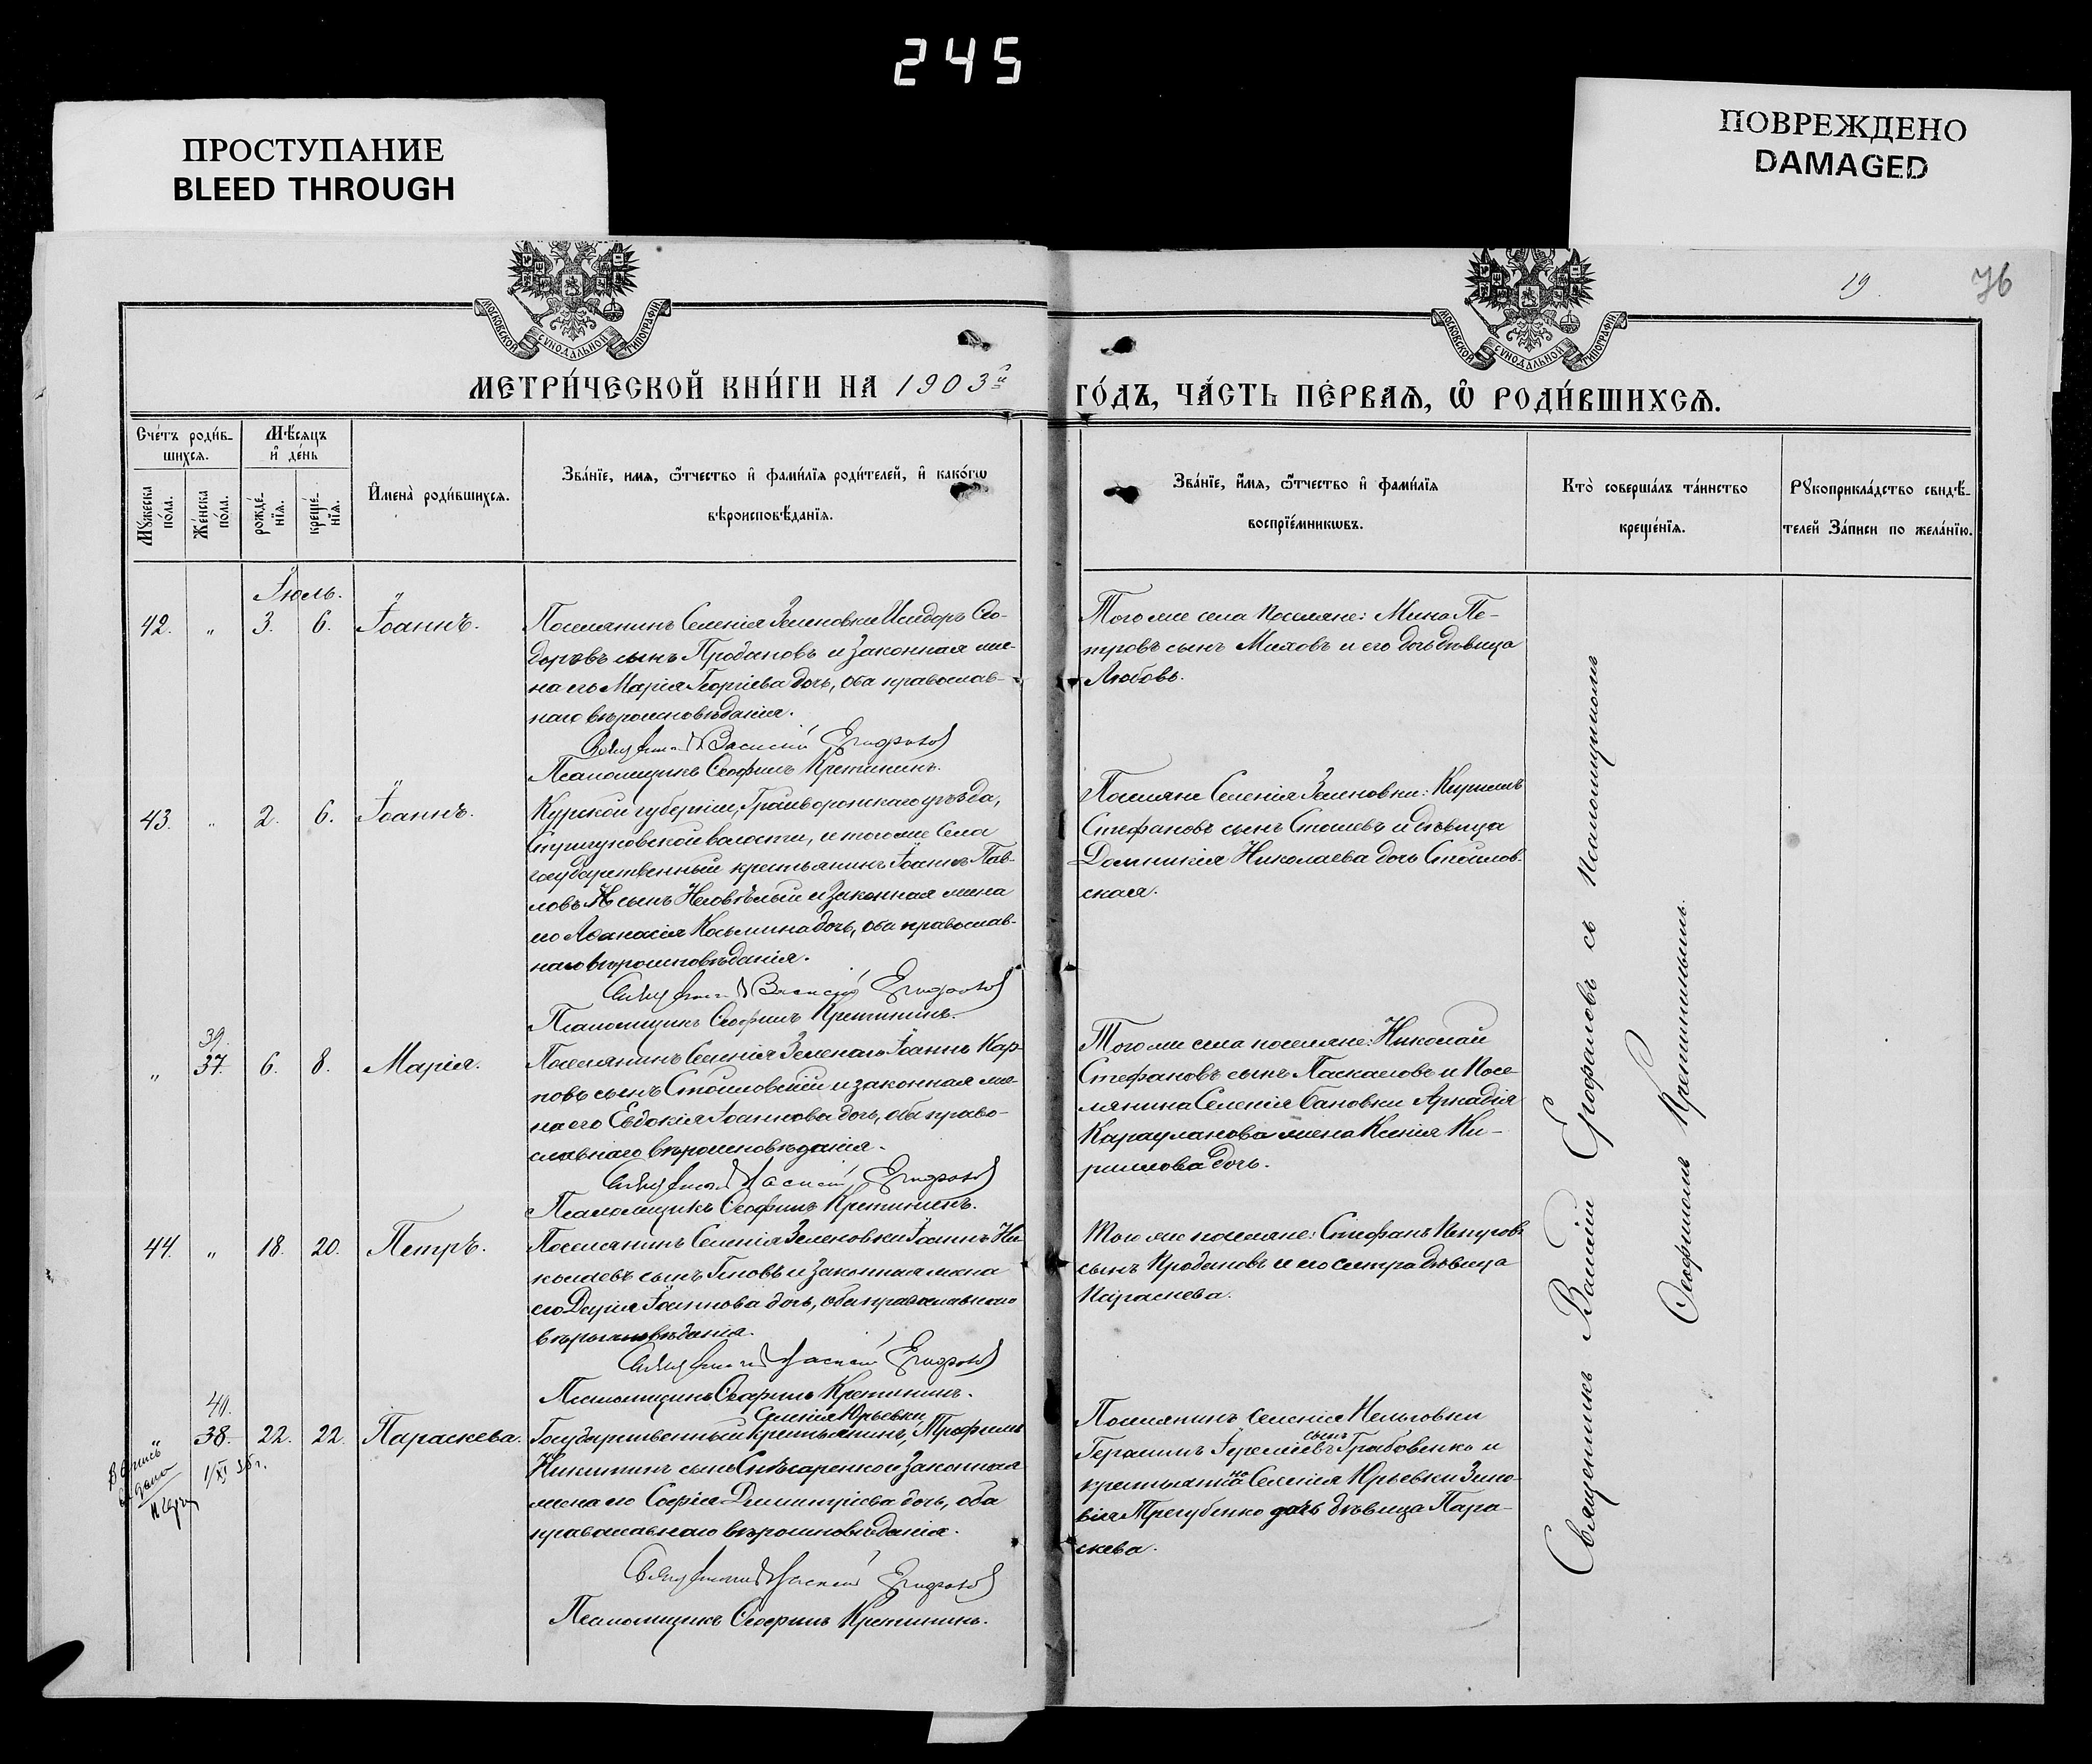 245
ПРОСТУПАНИЕ
BLEED THROUGH
ПОВРЕЖДЕНО
DAMAGED
19.
76
МОСКОВСКОЙ СѴНОДАЛЬНОЙ ТИПОГРАФІИ
МОСКОВСКОЙ СѴНОДАЛЬНОЙ ТИПОГРАФІИ
МЕТРИ́ЧЕСКОЙ КНИ́ГИ НА 1903й
ГО́ДЪ, ЧА́СТЬ ПЕ́РВАѦ, Ѡ҆ РОДИ́ВШИХСѦ.
Сче́тъ роди́в-
шихсѧ.
Мꙋжеска по́ла.
Же́нска по́ла.
Мѣ́сѧцъ
и҆ де́нь
рожде́-
нїѧ.
креще́-
нїѧ.
И҆мена̀ роди́вшихсѧ.
Зва́нїе, имѧ, ѻ҆́тчество и҆ фами́лїѧ роди́телей, и҆ како́гѡ
вѣроисповѣ́данїѧ.
Зва́нїе, и҆́мѧ, ѻ҆́тчество и҆ фами́лїѧ
воспрїе́мникѡвъ.
Кто̀ соверша́лъ та́инство
креще́нїѧ.
Рꙋкоприкла́дство свидѣ́-
телей За́писи по жела́нїю.
Іюль.
42. „ 3. 6. Іоаннъ.
Поселянинъ Селенія Зеленовки Исидоръ Ѳео-
доровъ сынъ Продановъ и законная же-
на его Марія Георгіева дочь, оба православ-
наго вѣроисповѣданія.
Священникъ Василій Ерофаловъ
Псаломщикъ Ѳеофилъ Кретининъ.
Того же села поселяне: Мина Пе-
тровъ сынъ Миховъ и его дочь дѣвица
Любовь.
43. „ 2. 6. Іоаннъ.
Курской губерніи, Грайворонскаго уѣзда,
Стригуновской волости, и того же Села
государственный крестьянинъ Іоаннъ Пав-
ловъ сынъ и законная жена
его Аѳанасія Косьмина дочь, оба православ-
наго вѣроисповѣданія.
Священникъ Василій Ерофаловъ
Псаломщикъ Ѳеофилъ Кретининъ.
Поселяне Селенія Зеленовки: Кириллъ
Стефановъ сынъ Стоевъ и дѣвица
Домникія Николаева дочь Стоилов-
ская.
39.
„ 37. 6. 8. Марія.
Поселянинъ Селенія Зеленаго Іоаннъ Кар-
повъ сынъ Стоиловскій и законная же-
на его Евдокія Іоаннова дочь, оба право-
славнаго вѣроисповѣданія.
Священникъ Василій Ерофаловъ
Псаломщикъ Ѳеофилъ Кретининъ.
Того же села поселяне: Николай
Стефановъ сынъ Паскаловъ и посе-
лянина Селенія Бановки Аркадія
Карауланова жена Ксенія Ки-
риллова дочь.
44. „ 18. 20. Петръ.
Поселянинъ Селенія Зеленовки Іоаннъ Ни-
колаевъ сынъ и законная жена
его Дарія Іоаннова дочь, оба православнаго
вѣроисповѣданія.
Священникъ Василій Ерофаловъ
Псаломщикъ Ѳеофилъ Кретининъ.
Того же поселяне: Стефанъ Петровъ
сынъ Продановъ и его сестра дѣвица
Параскева.
40.
„ 38. 22. 22. Параскева.
Селенія Юрьевки
Государственный крестьянинъ, Трофимъ
Никитинъ сынъ Слѣсаренко и законная
жена его Софія Димитріева дочь, оба
православнаго вѣроисповѣданія.
Священникъ Василій Ерофаловъ
Псаломщикъ Ѳеофилъ Кретининъ.
Поселянинъ селенія Нельговки
Герасимъ Іереміевъ сынъ Грабовенко и
крестьянина Селенія Юрьевки Зино-
вія Трегубенко дочь дѣвица Пара-
скева.
выдано
1/XI 35 г.
Священникъ Василій Ерофаловъ съ псаломщикомъ
Ѳеофиломъ Кретининымъ.